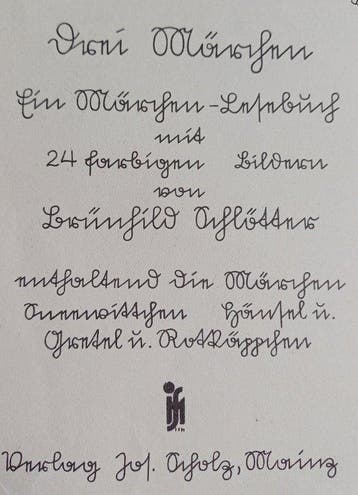 Drei Märchen
Ein Märchen-Lesebuch
mit
24 farbigen Bildern
von
Brünhild Schlötter
enthaltend die Märchen
Sneewittchen Hänsel u.
Gretel u. Rotkäppchen
Verlag Jos. Scholz, Mainz